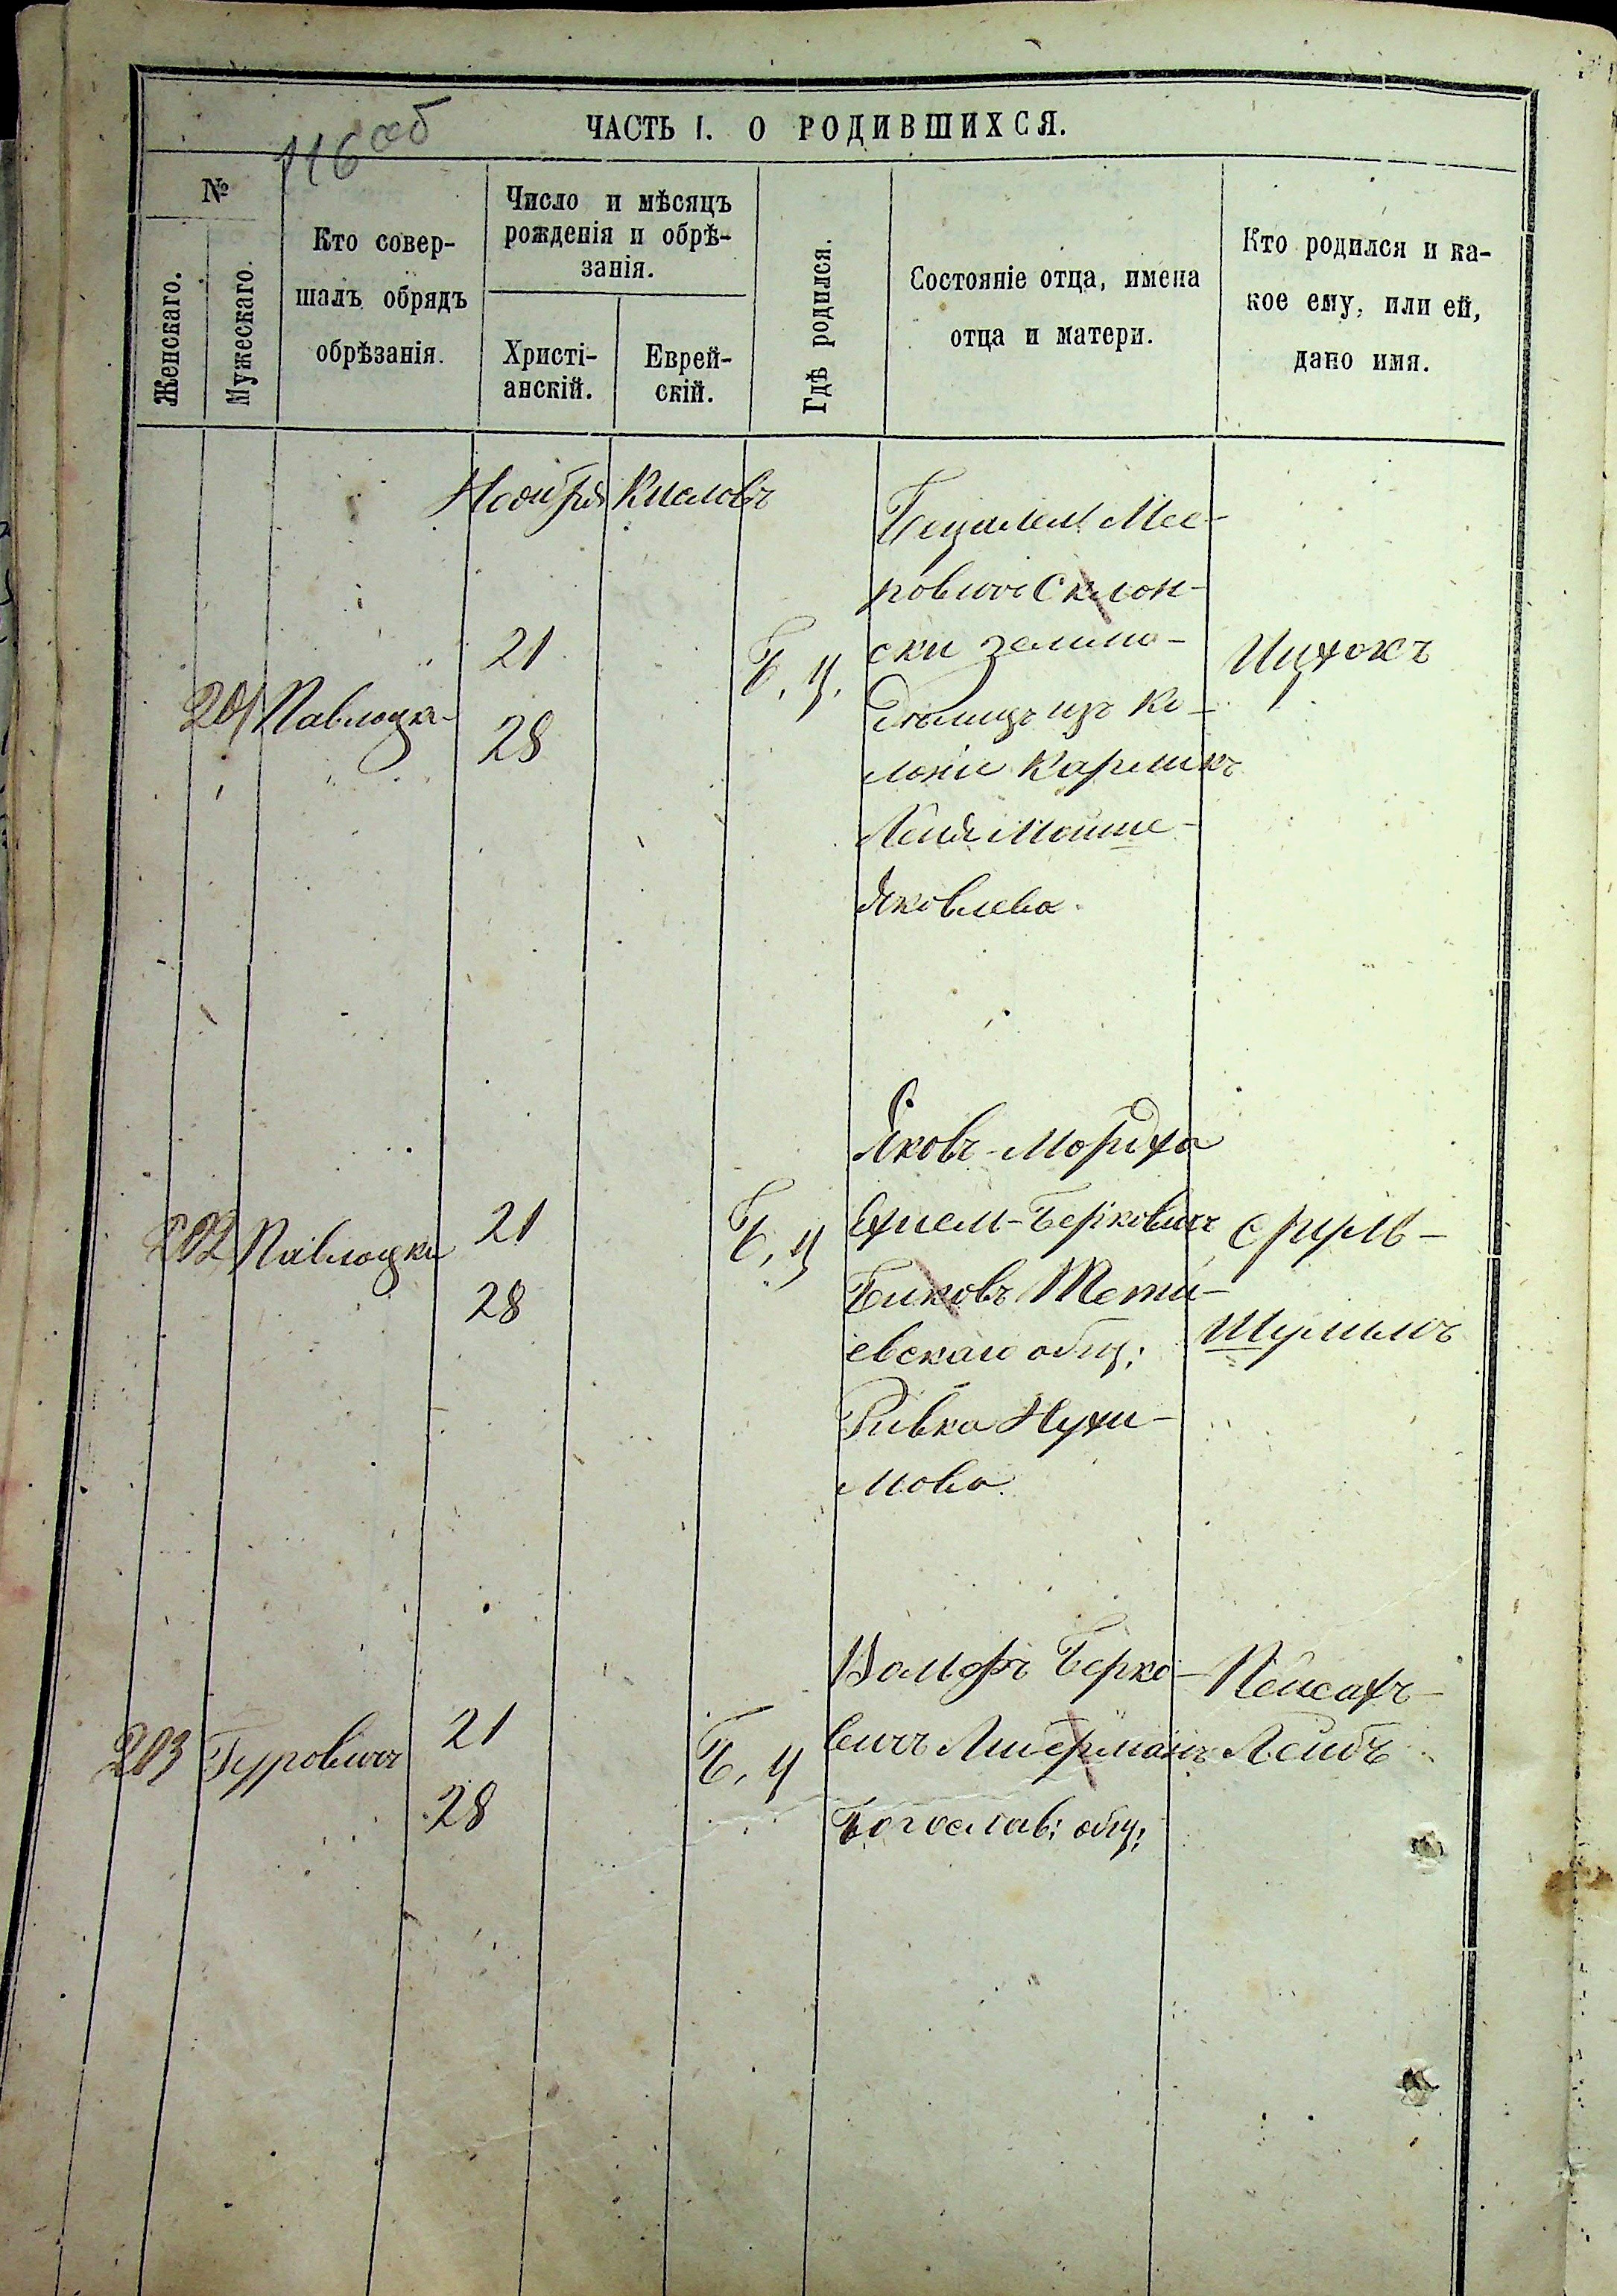 116 об
ЧАСТЬ I. О РОДИВШИХСЯ.
№
Женскаго.
Мужескаго.
Кто совер-
шалъ обрядъ
обрѣзанія.
Число и мѣсяцъ
рожденія и обрѣ-
занія.
Христі-
анскій.
Еврей-
скій.
Гдѣ родился.
Состояніе отца, имена
отца и матери.
Кто родился и ка-
кое ему, или ей,
дано имя.
Ноября
Кислевъ
201
Павлоцки
21
28
Б. Ц.
Бецалел Мее-
ровичъ Склон-
ски землио-
дѣлицъ изъ Ко-
лоніи Кармикъ
Лея Мошие-
Яковлева
Ицхокъ
202
Павлоцки
21
28
Б. Ц
Яковъ-Мордха
Ехиел-Берковичъ
Биковъ Тети-
евскаго общ:
Ривка Нухи-
мова
Сруль-
Шулимъ
203
Гуровичъ
21
28
Б. Ц
Вольфъ Берко-
вичъ Либерманъ
Богослав: общ:
Пейсахъ-
Лейбъ